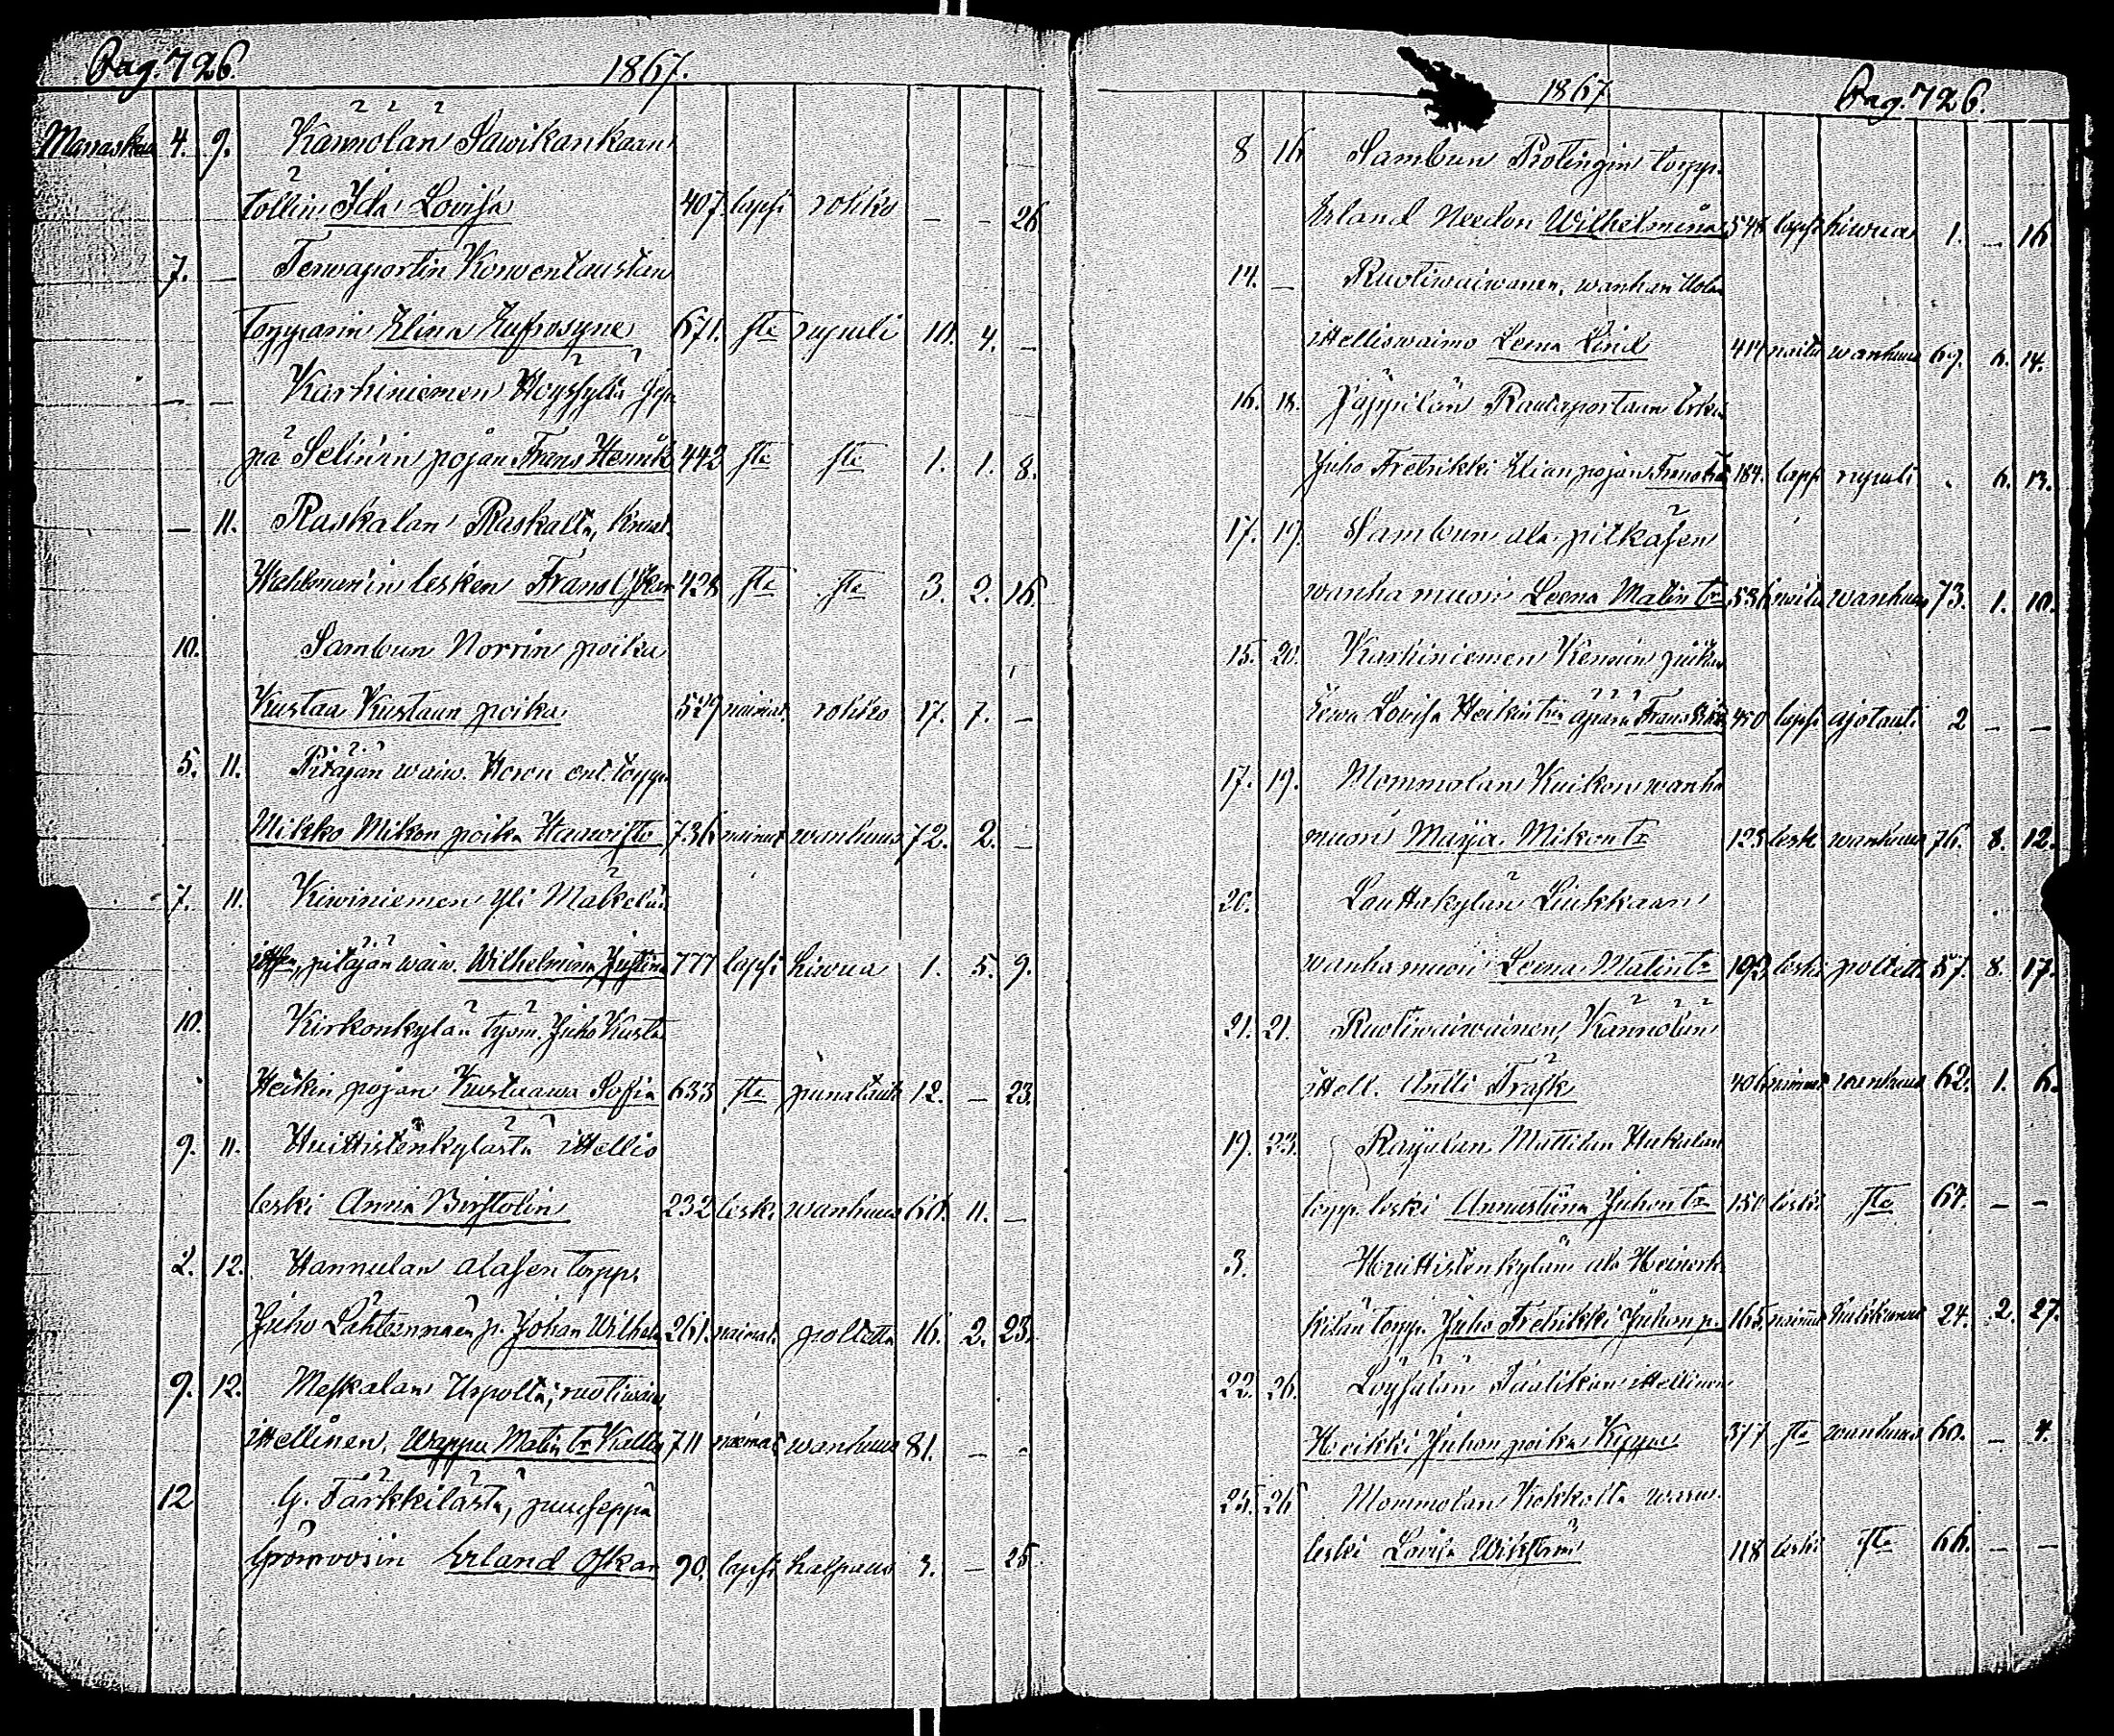 Pag. 726. 1867.
4. 9. Kännölän Sawikankaan
töllin Ida Lovisa 407. lapsi rokko — — 26
7. — Terwaportin Korwentaustan
torpparin Elina Eufrosyne 671. ste rupuli 10. 4. —
— — Karhiniemen
Selinin pojan Frans Henrik 442 ste ste 1. 1. 8.
— 11. Raskalan Raskalta,
lesken Frans Oskar 428 ste ste 3. 2. 16.
10. Sambun Norrin poika
Kustaa Kustaan poika 529 naimat. rokko 17. 7. —
5. 11. Pitäjän waiw.
Mikko Mikon poika Haawisto 736 nainut wanhuus 72. 2. —
7. 11. Kiwiniemen Yli Mäkelän
pitäjän waiw. Wilhelmina Justina 777 lapsi hiwua 1. 5. 9.
10. Kirkonkylän työm. Juho Kusta
Heikin pojan Kustaawa Sofia 633 ste punatauti 12. — 23.
9. 11. Huittistenkylästä ittellis
leski Anna 232 leski wanhuus 60. 11. —
2. 12. Hannulan alasen torpp.
Juho Lähteenmäen p. Johan Wilhelm 261. naimat. poltetta 16. 2. 23.
9. 12. Meskalan Uspolta, ruotiwaiw.
ittellinen, Wappu Matin tr Kallia 711 naimat wanhuus 81. — —
12 G. Tärkkilästä, puuseppä
Grönroosin Erland Oskar 90. lapsi halpaus 3. — 25
1867 Pag. 726.
8 16 Sambun Protingin torpp.
Erland Needon Wilhelmina 548 lapsi hiwua 1. — 16
14. — Ruotiwaiwanen, wanhan
ittelliswaimo Leena Lind 414 wanhuus 69. 6. 14.
16. 18. Jäppilän Rautaportaan
Juho Fretrikki Elian pojan 184. lapsi rupuli . 6. 13.
17. 19. Sambun ala pitkäsen
wanha muori Leena Matin tr 536 wanhuus 73. 1. 10.
15. 20. Karhiniemen Kennin piikan
Eewa Lovisa Heikin tr äpärä Frans 450 lapsi ajotauti 2 — —
17. 19. Mommolan Kuikon wanha
muori Maija Mikon tr 123 leski wanhuus 76. 8. 12.
20. Lauttakylän Liukkaan
wanha muori Leena Matin tr 193 leski poltett 57. 8. 17.
21. 21. Ruotiwaiwainen, Kännölän
ittell. Antti Träsk 406 wanhuus 62. 1. 6.
19. 23. Raijalan Mattilan Hakulan
torpp. leski Annastiina Juhon tr 150 leski ste 64. — —
3. Huittistenkylän ala Heinork-
kilän torpp. Juho Fretrikki Juhon p. 165. nainut 24. 2. 27.
22. 26. Löysälän ittellinen
Heikki Juhon poika 377 ste wanhuus 60. — 4.
25. 26 Mommolan Kokkolta
leski Lovisa Wikström 118 leski ste 66. — —